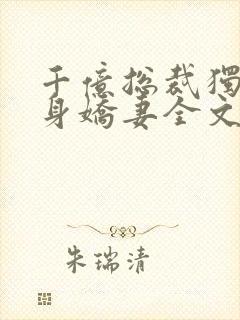 千億總裁獨
身嬌妻全文
朱瑞清